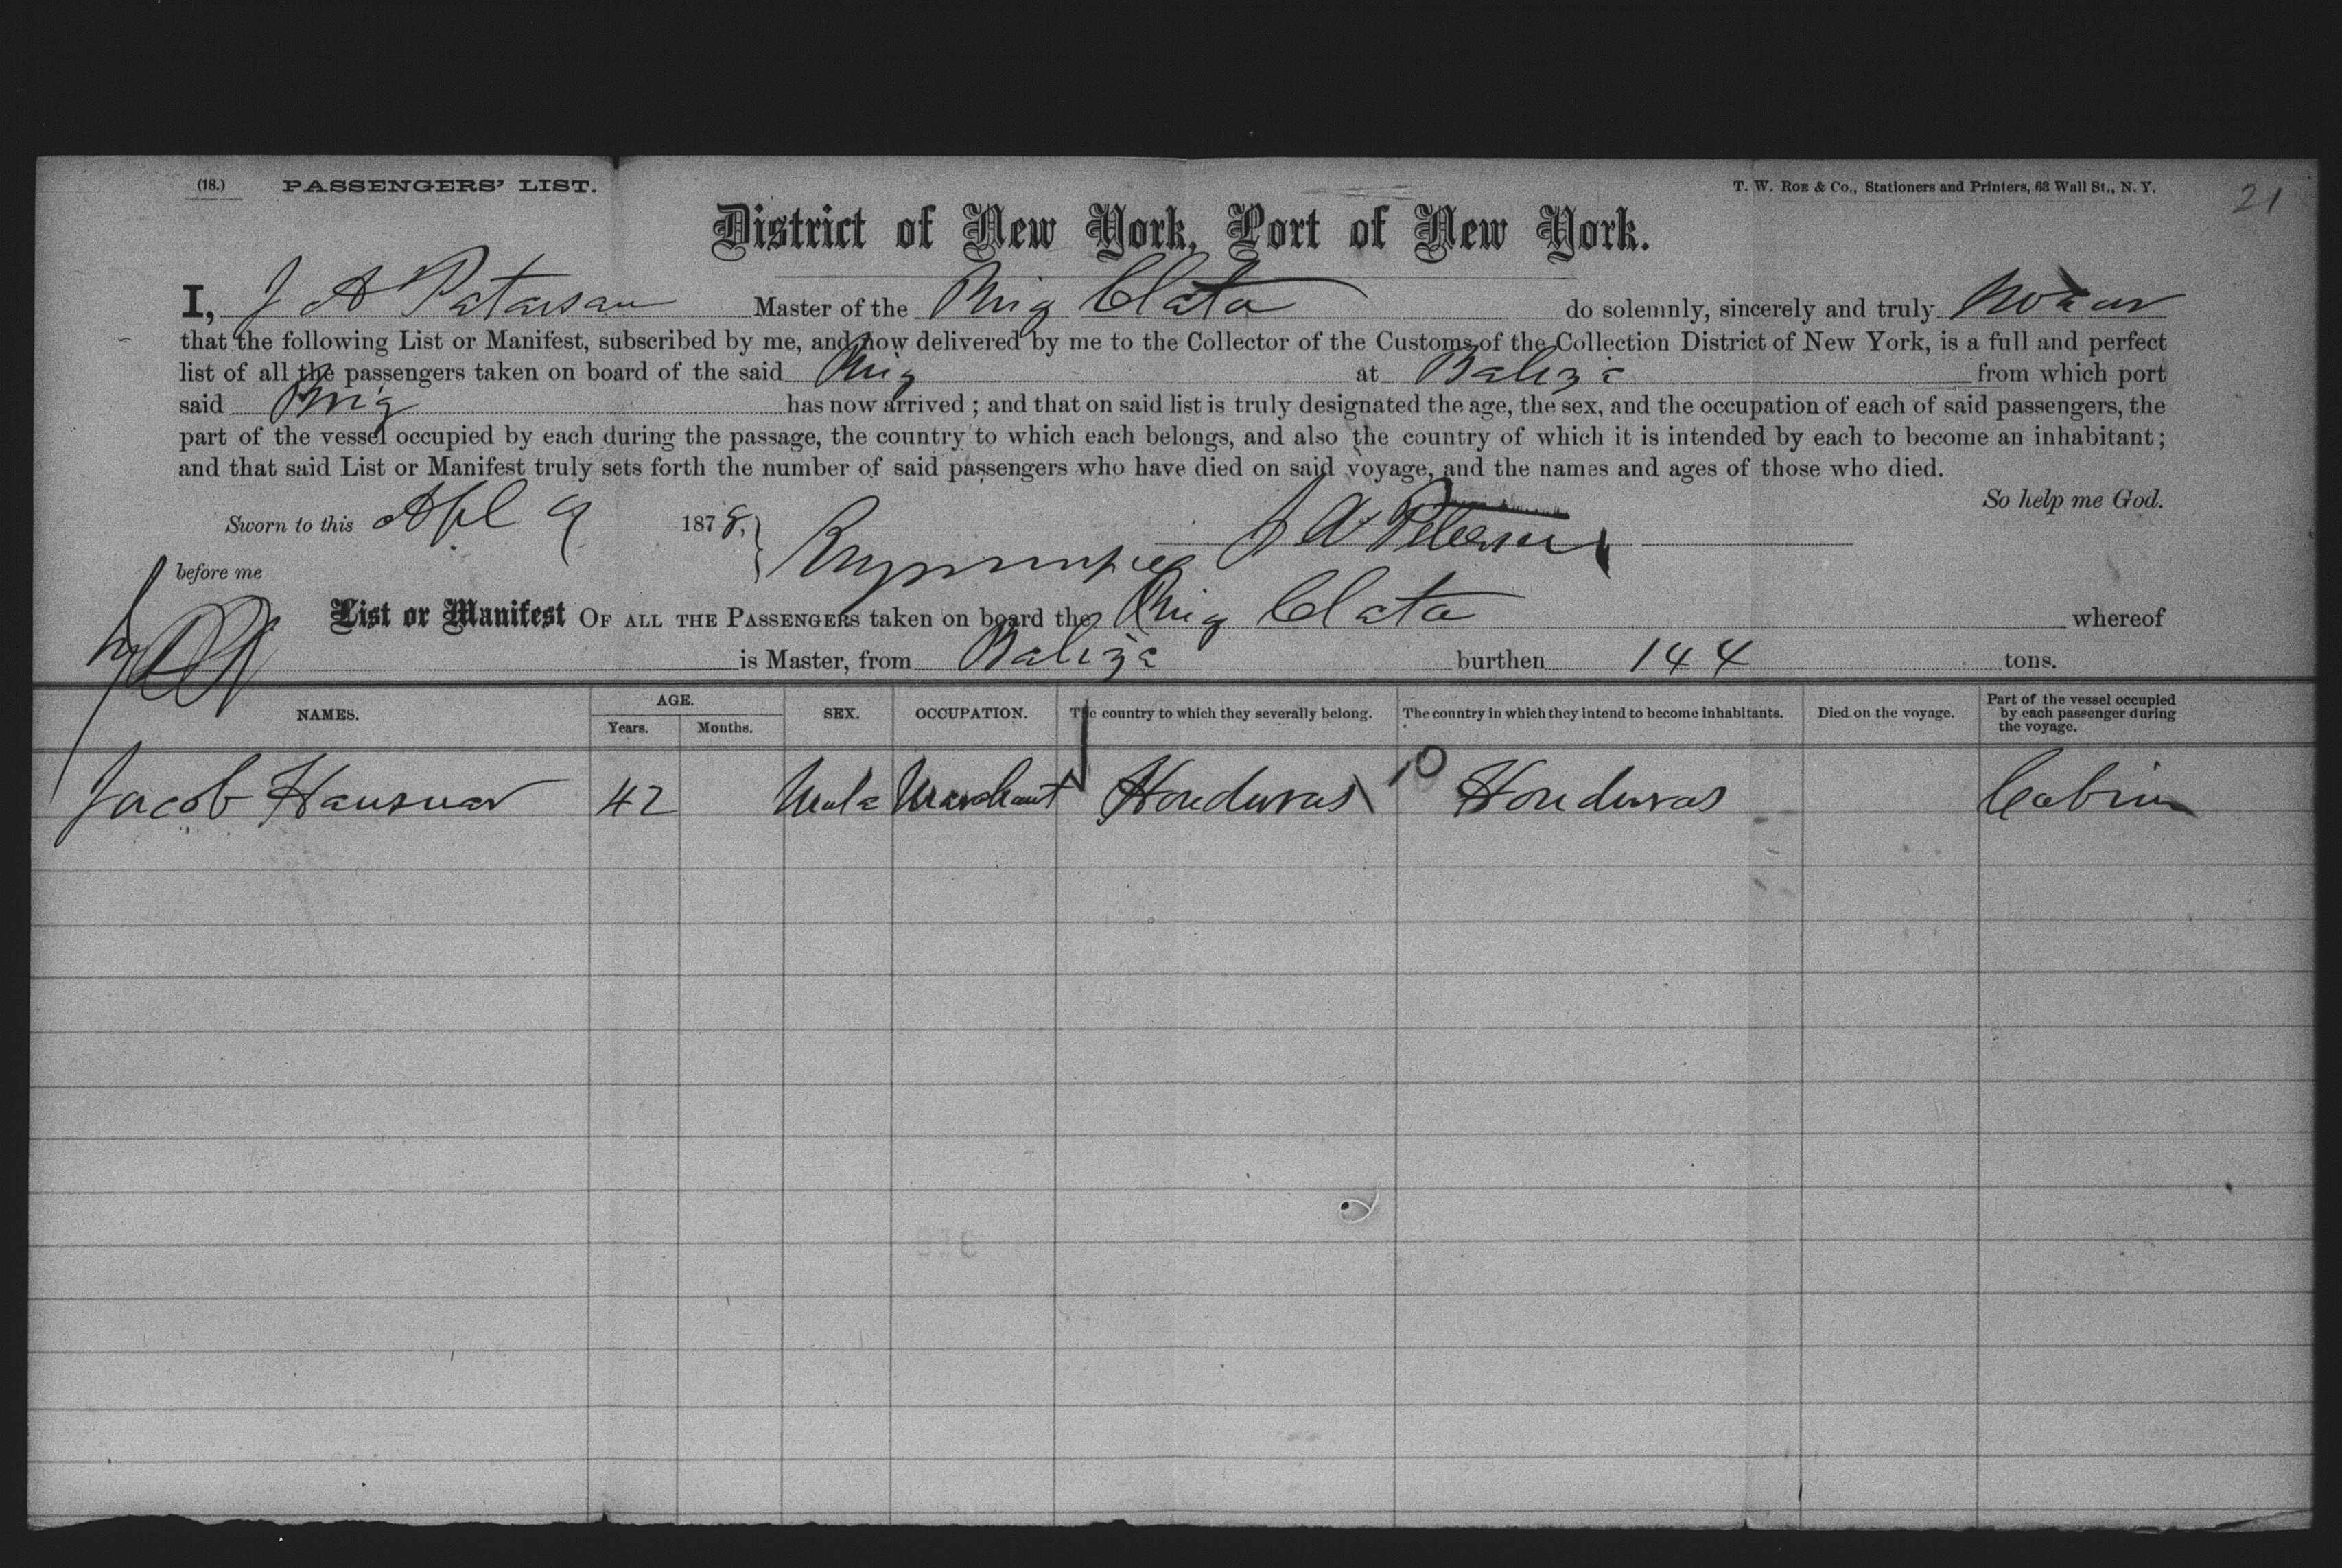 (18.) PASSENGERS' LIST. T. W. ROE & CO., Stationers and Printers, 63 Wall St., N. Y. 21
District of New York, Port of New York.
I, J A Paterson Master of the Brig Clata do solemnly, sincerely and truly swear
that the following List or Manifest, subscribed by me, and now delivered by me to the Collector of the Customs of the Collection District of New York, is a full and perfect
list of all the passengers taken on board of the said Brig at Balize from which port
said Brig has now arrived ; and that on said list is truly designated the age, the sex, and the occupation of each of said passengers, the
part of the vessel occupied by each during the passage, the country to which each belongs, and also the country of which it is intended by each to become an inhabitant ;
and that said List or Manifest truly sets forth the number of said passengers who have died on said voyage, and the names and ages of those who died.
So help me God.
Sworn to this Apl 9 1878, J A Peterson
before me
List or Manifest OF ALL THE PASSENGERS taken on board the Brig Clata whereof
is Master, from Balize burthen 144 tons.
NAMES. AGE. Years. Months. SEX. OCCUPATION. The country to which they severally belong. The country in which they intend to become inhabitants. Died on the voyage. Part of the vessel occupied by each passenger during the voyage.
Jacob Hausnar 42 Male Merchant Honduras Honduras Cabin